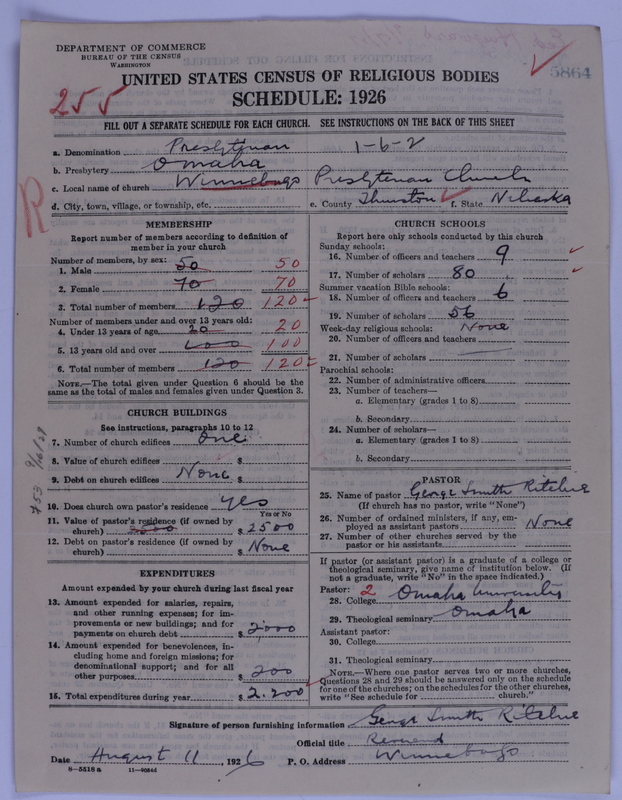 DEPARTMENT OF COMMERCE
BUREAU OF THE CENSUS
WASHINGTON
5864
UNITED STATES CENSUS OF RELIGIOUS BODIES
SCHEDULE: 1926
255
FILL OUT A SEPARATE SCHEDULE FOR EACH CHURCH. SEE INSTRUCTIONS ON THE BACK OF THIS SHEET
a. Denomination Presbyterian 1-6-2
b. Presbytery Omaha
c. Local name of church Winnebago Presbyterian Church
d. City, town, village, or township, etc. e. County Thurston f. State Nebraska
R
MEMBERSHIP
Report number of members according to definition of
member in your church
Number of members, by sex:
1. Male 50 50
2. Female 70 70
3. Total number of members 120 120
Number of members under and over 13 years old:
4. Under 13 years of age 20 20
5. 13 years old and over 100 100
6. Total number of members 120 120
NOTE.—The total given under Question 6 should be the
same as the total of males and females given under Question 3.
CHURCH BUILDINGS
See instructions, paragraphs 10 to 12
7. Number of church edifices One
8. Value of church edifices $
9. Debt on church edifices None $
10. Does church own pastor's residence? Yes
Yes or No
11. Value of pastor's residence (if owned by
church) $ 2500
12. Debt on pastor's residence (if owned by
church) $ None
EXPENDITURES
Amount expended by your church during last fiscal year
13. Amount expended for salaries, repairs,
and other running expenses; for im-
provements or new buildings; and for
payments on church debt $ 2000
14. Amount expended for benevolences, in-
cluding home and foreign missions; for
denominational support; and for all
other purposes $ 200
15. Total expenditures during year $ 2.200
CHURCH SCHOOLS
Report here only schools conducted by this church
Sunday schools:
16. Number of officers and teachers 9
17. Number of scholars 80
Summer vacation Bible schools:
18. Number of officers and teachers 6
19. Number of scholars 56
Week-day religious schools: None
20. Number of officers and teachers
21. Number of scholars
Parochial schools:
22. Number of administrative officers
23. Number of teachers—
a. Elementary (grades 1 to 8)
b. Secondary
24. Number of scholars—
a. Elementary (grades 1 to 8)
b. Secondary
PASTOR
25. Name of pastor George Smith Ritchie
(If church has no pastor, write "None")
26. Number of ordained ministers, if any, em-
ployed as assistant pastors None
27. Number of other churches served by the
pastor or his assistants
If pastor (or assistant pastor) is a graduate of a college or
theological seminary, give name of institution below. (If
not a graduate, write "No" in the space indicated.)
Pastor: 2
28. College Omaha University
29. Theological seminary Omaha
Assistant pastor:
30. College
31. Theological seminary
NOTE.—Where one pastor serves two or more churches,
Questions 28 and 29 should be answered only on the schedule
for one of the churches; on the schedules for the other churches,
write "See schedule for church."
Signature of person furnishing information George Smith Ritchie
Official title Reverend
Date August 11, 1926 P. O. Address Winnebago
8—5518 a